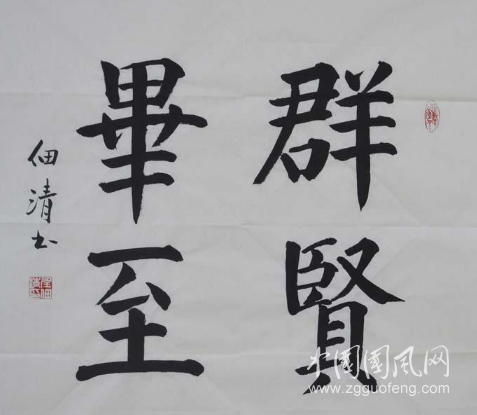 群賢
畢至
佃清书
中国国风网
www.zgguofeng.com